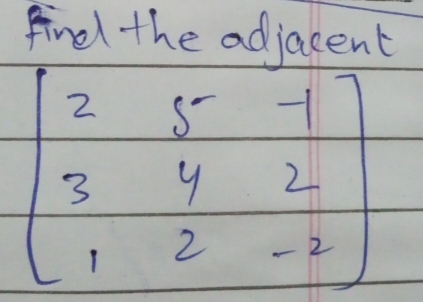 find the adjacent
2 5 -1
3 4 2
1 2 -2